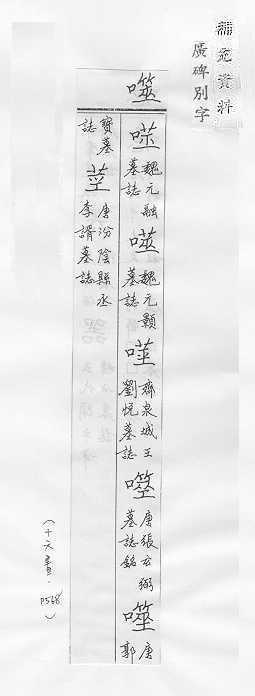 補充資料
廣碑別字
噬
噬 魏元融墓誌 噬 魏元顥墓誌 噬 齊泉城王劉悅墓誌 噬 唐張玄弼墓誌銘 噬 唐郭
寶墓誌 莁 唐汾陰縣丞李謂墓誌
(十六畫．P568)